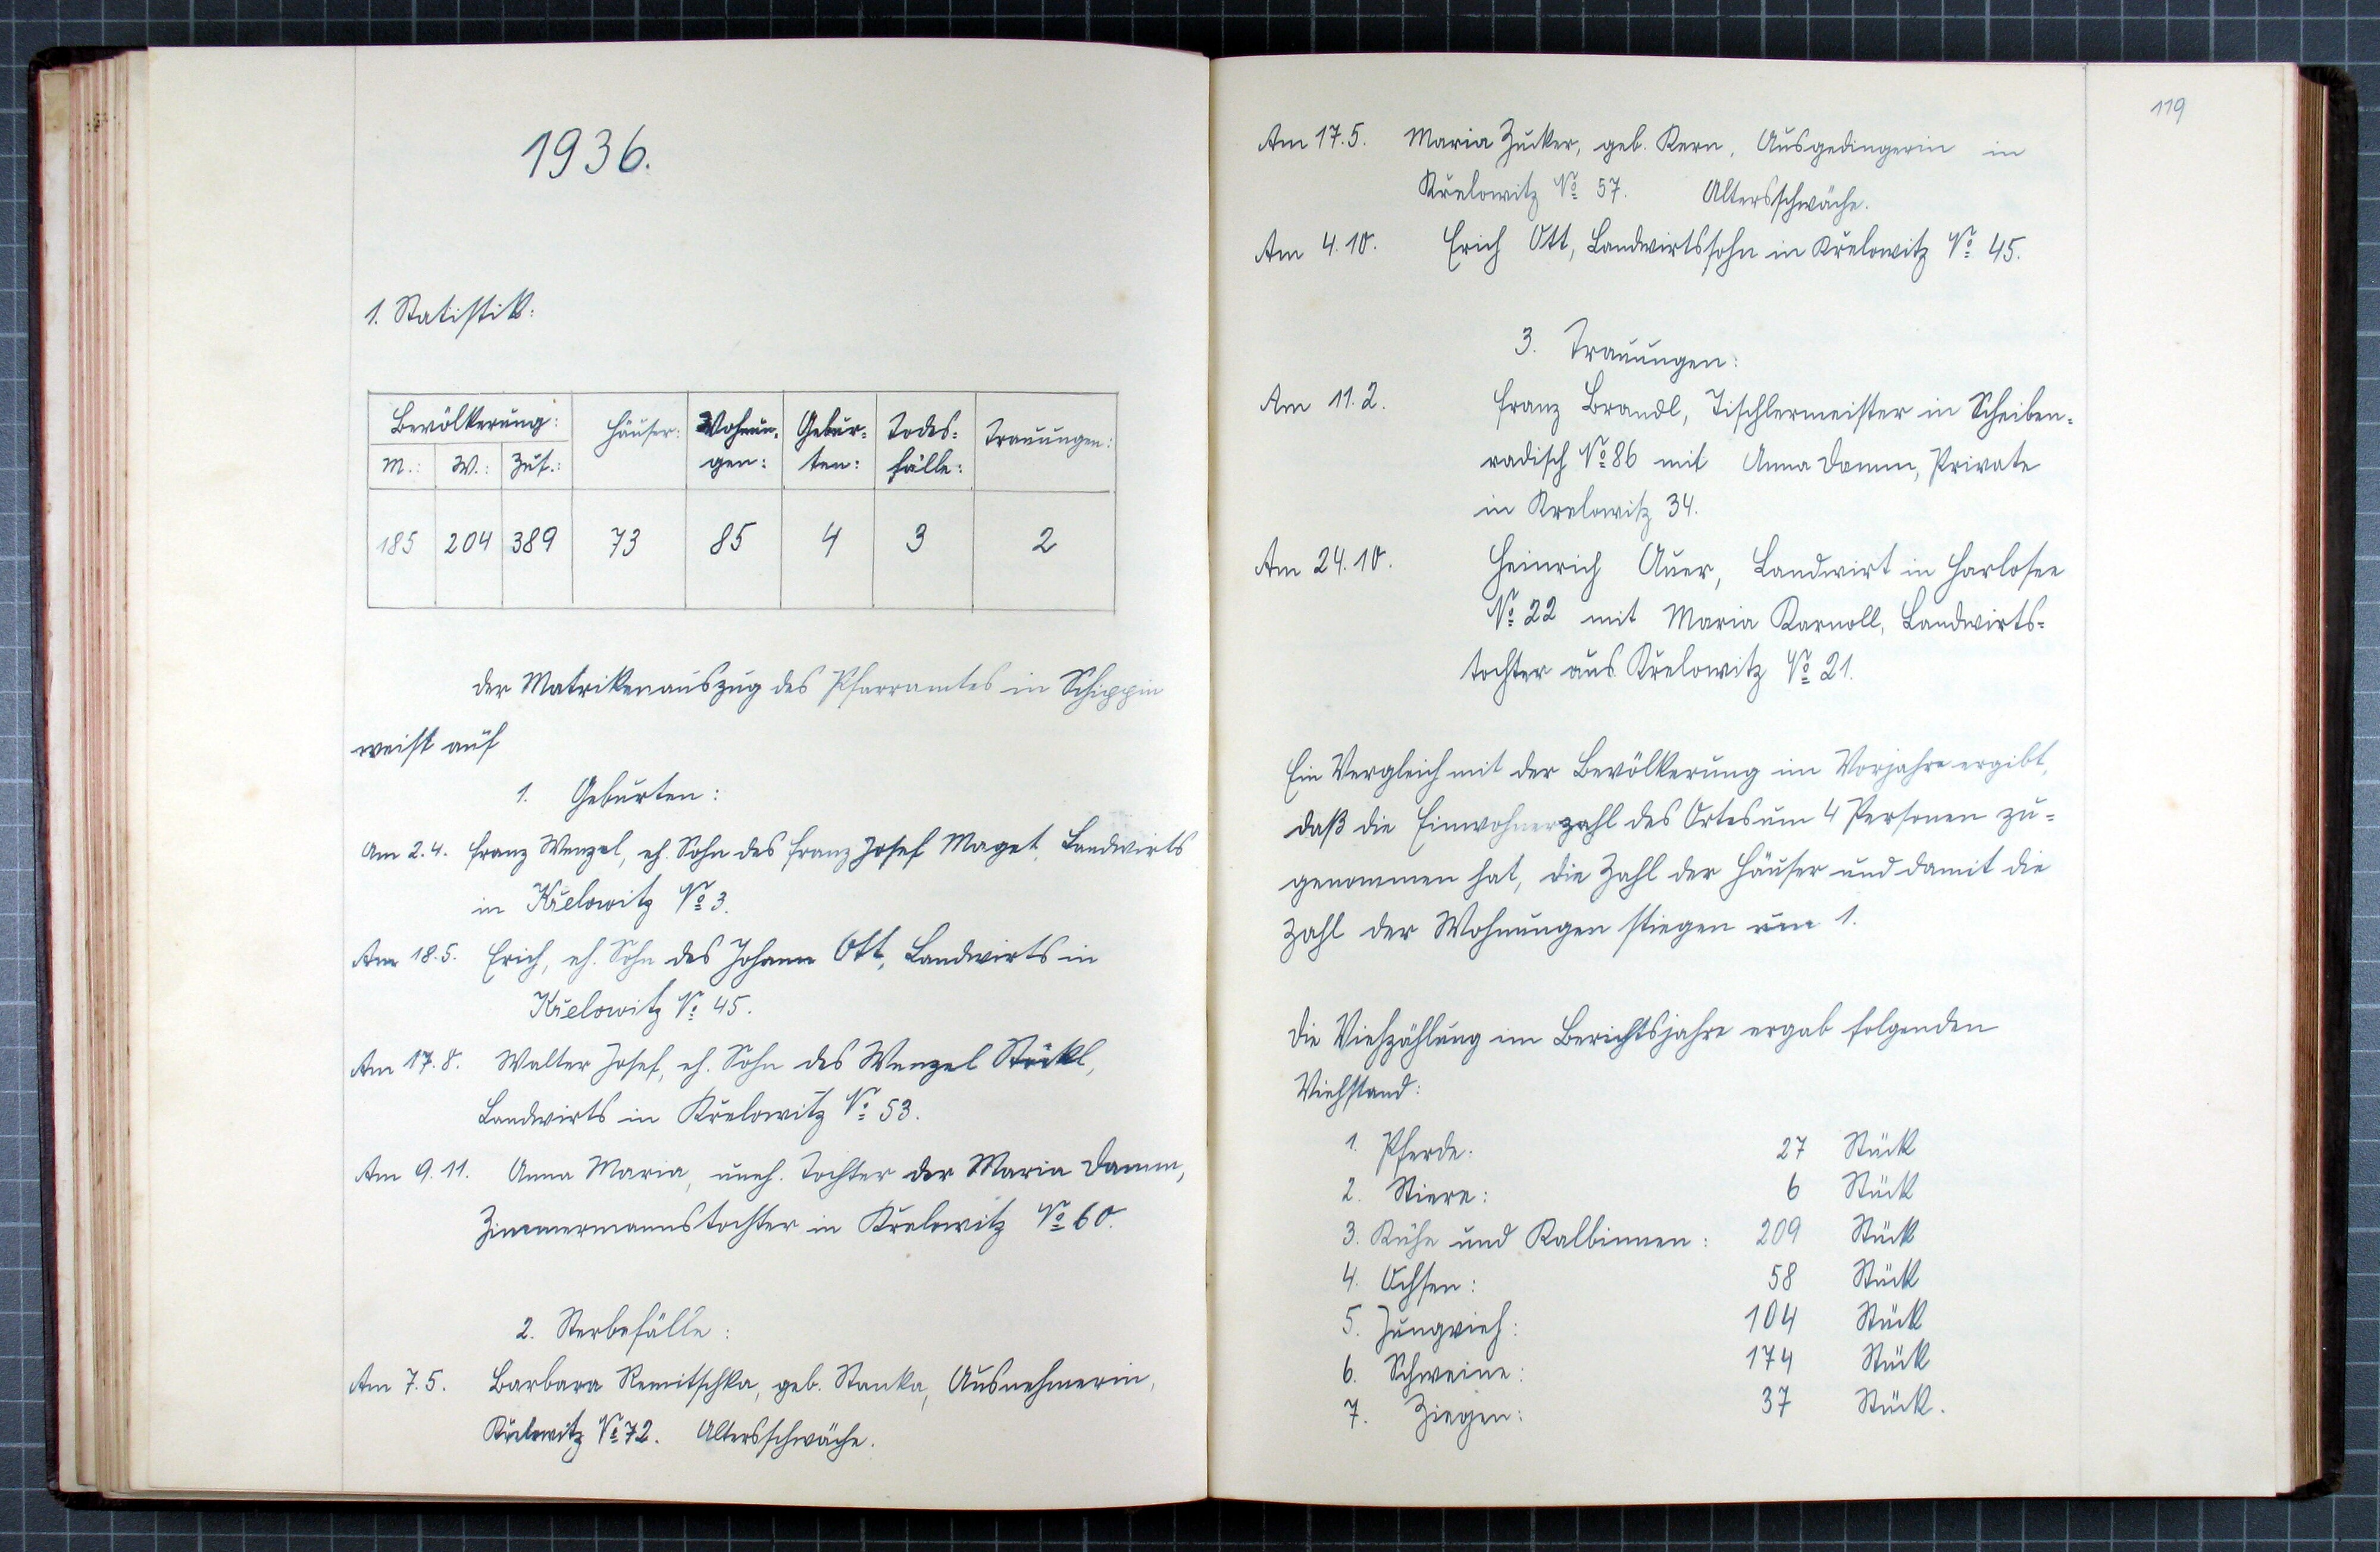 1936.
1. Statistik:
Bevölkerung: Häuser: Wohnun- gen: Gebur- ten: Todes- fälle: Trauungen:
M.: W.: Zus.:
185 204 389 73 85 4 3 2
Der Matrikenauszug des Pfarramtes in Schippin
weist auf
1. Geburten:
Am 2.4. Franz Wenzel, eh. Sohn des Franz Josef Maget, Landwirts
in Křelowitz No 3.
Am 18.5. Erich, eh. Sohn des Johann Ott, Landwirts in
Křelowitz No 45.
Am 17.8. Walter Josef, eh. Sohn des Wenzel Stöckl,
Landwirts in Křelowitz No 53.
Am 9.11. Anna Maria, uneh. Tochter der Maria Damm,
Zimmermannstochter in Křelowitz No 60.
2. Sterbefälle:
Am 7.5. Barbara Remitschka, geb. Stanka, Ausnehmerin,
Křelowitz No 72. Altersschwäche.
119
Am 17.5. Maria Zucker, geb. Kern, Ausgedingerin in
Křelowitz No 57. Altersschwäche.
Am 4.10. Erich Ott, Landwirtssohn in Křelowitz No 45.
3. Trauungen:
Am 11.2. Franz Brandl, Tischlermeister in Scheiben-
radisch No 86 mit Anna Damm, Private
in Krelowitz 34.
Am 24.10. Heinrich Auer, Landwirt in Harlosee
No 22 mit Maria Karnoll, Landwirts-
tochter aus Křelowitz No 21.
Ein Vergleich mit der Bevölkerung im Vorjahre ergibt,
daß die Einwohnerzahl des Ortes um 4 Personen zu-
genommen hat, die Zahl der Häuser und damit die
Zahl der Wohnungen stiegen um 1.
Die Viehzählung im Berichtsjahre ergab folgenden
Viehstand:
1. Pferde: 27 Stück
2. Stiere: 6 Stück
3. Kühe und Kalbinnen: 209 Stück
4. Ochsen: 58 Stück
5. Jungvieh: 104 Stück
6. Schweine: 174 Stück
7. Ziegen: 37 Stück.